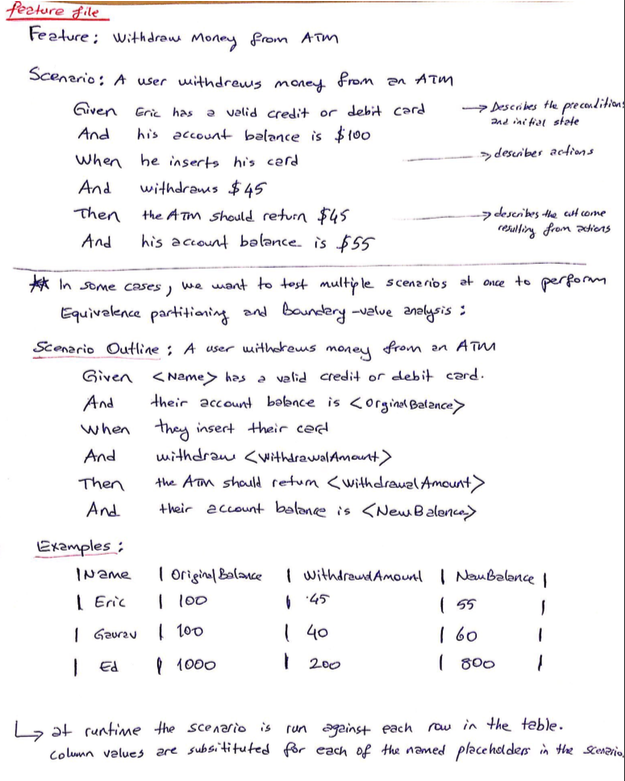 feature file
Feature: Withdraw Money from ATM
Scenario: A user withdrews money from an ATM
Given Eric has a valid credit or debit card → Describes the preconditions and initial state
And his account balance is $100
When he inserts his card → describes actions
And withdraws $45
Then the ATM should return $45 → describes the outcome resulting from actions
And his account balance is $55
** In some cases, we want to test multiple scenarios at once to perform
Equivalence partitioning and Boundary-value analysis:
Scenario Outline: A user withdrews money from an ATM
Given <Name> has a valid credit or debit card.
And their account balance is <OrginalBalance>
When they insert their card
And withdraw <WithdrawalAmount>
Then the ATM should return <WithdrawalAmount>
And their account balance is <NewBalance>
Examples:
| Name | OriginalBalance | WithdrawalAmount | NewBalance |
| Eric | 100 | 45 | 55 |
| Gaurav | 100 | 40 | 60 |
| Ed | 1000 | 200 | 800 |
↳ at runtime the scenario is run against each row in the table.
column values are subsitituted for each of the named placeholders in the scenario.